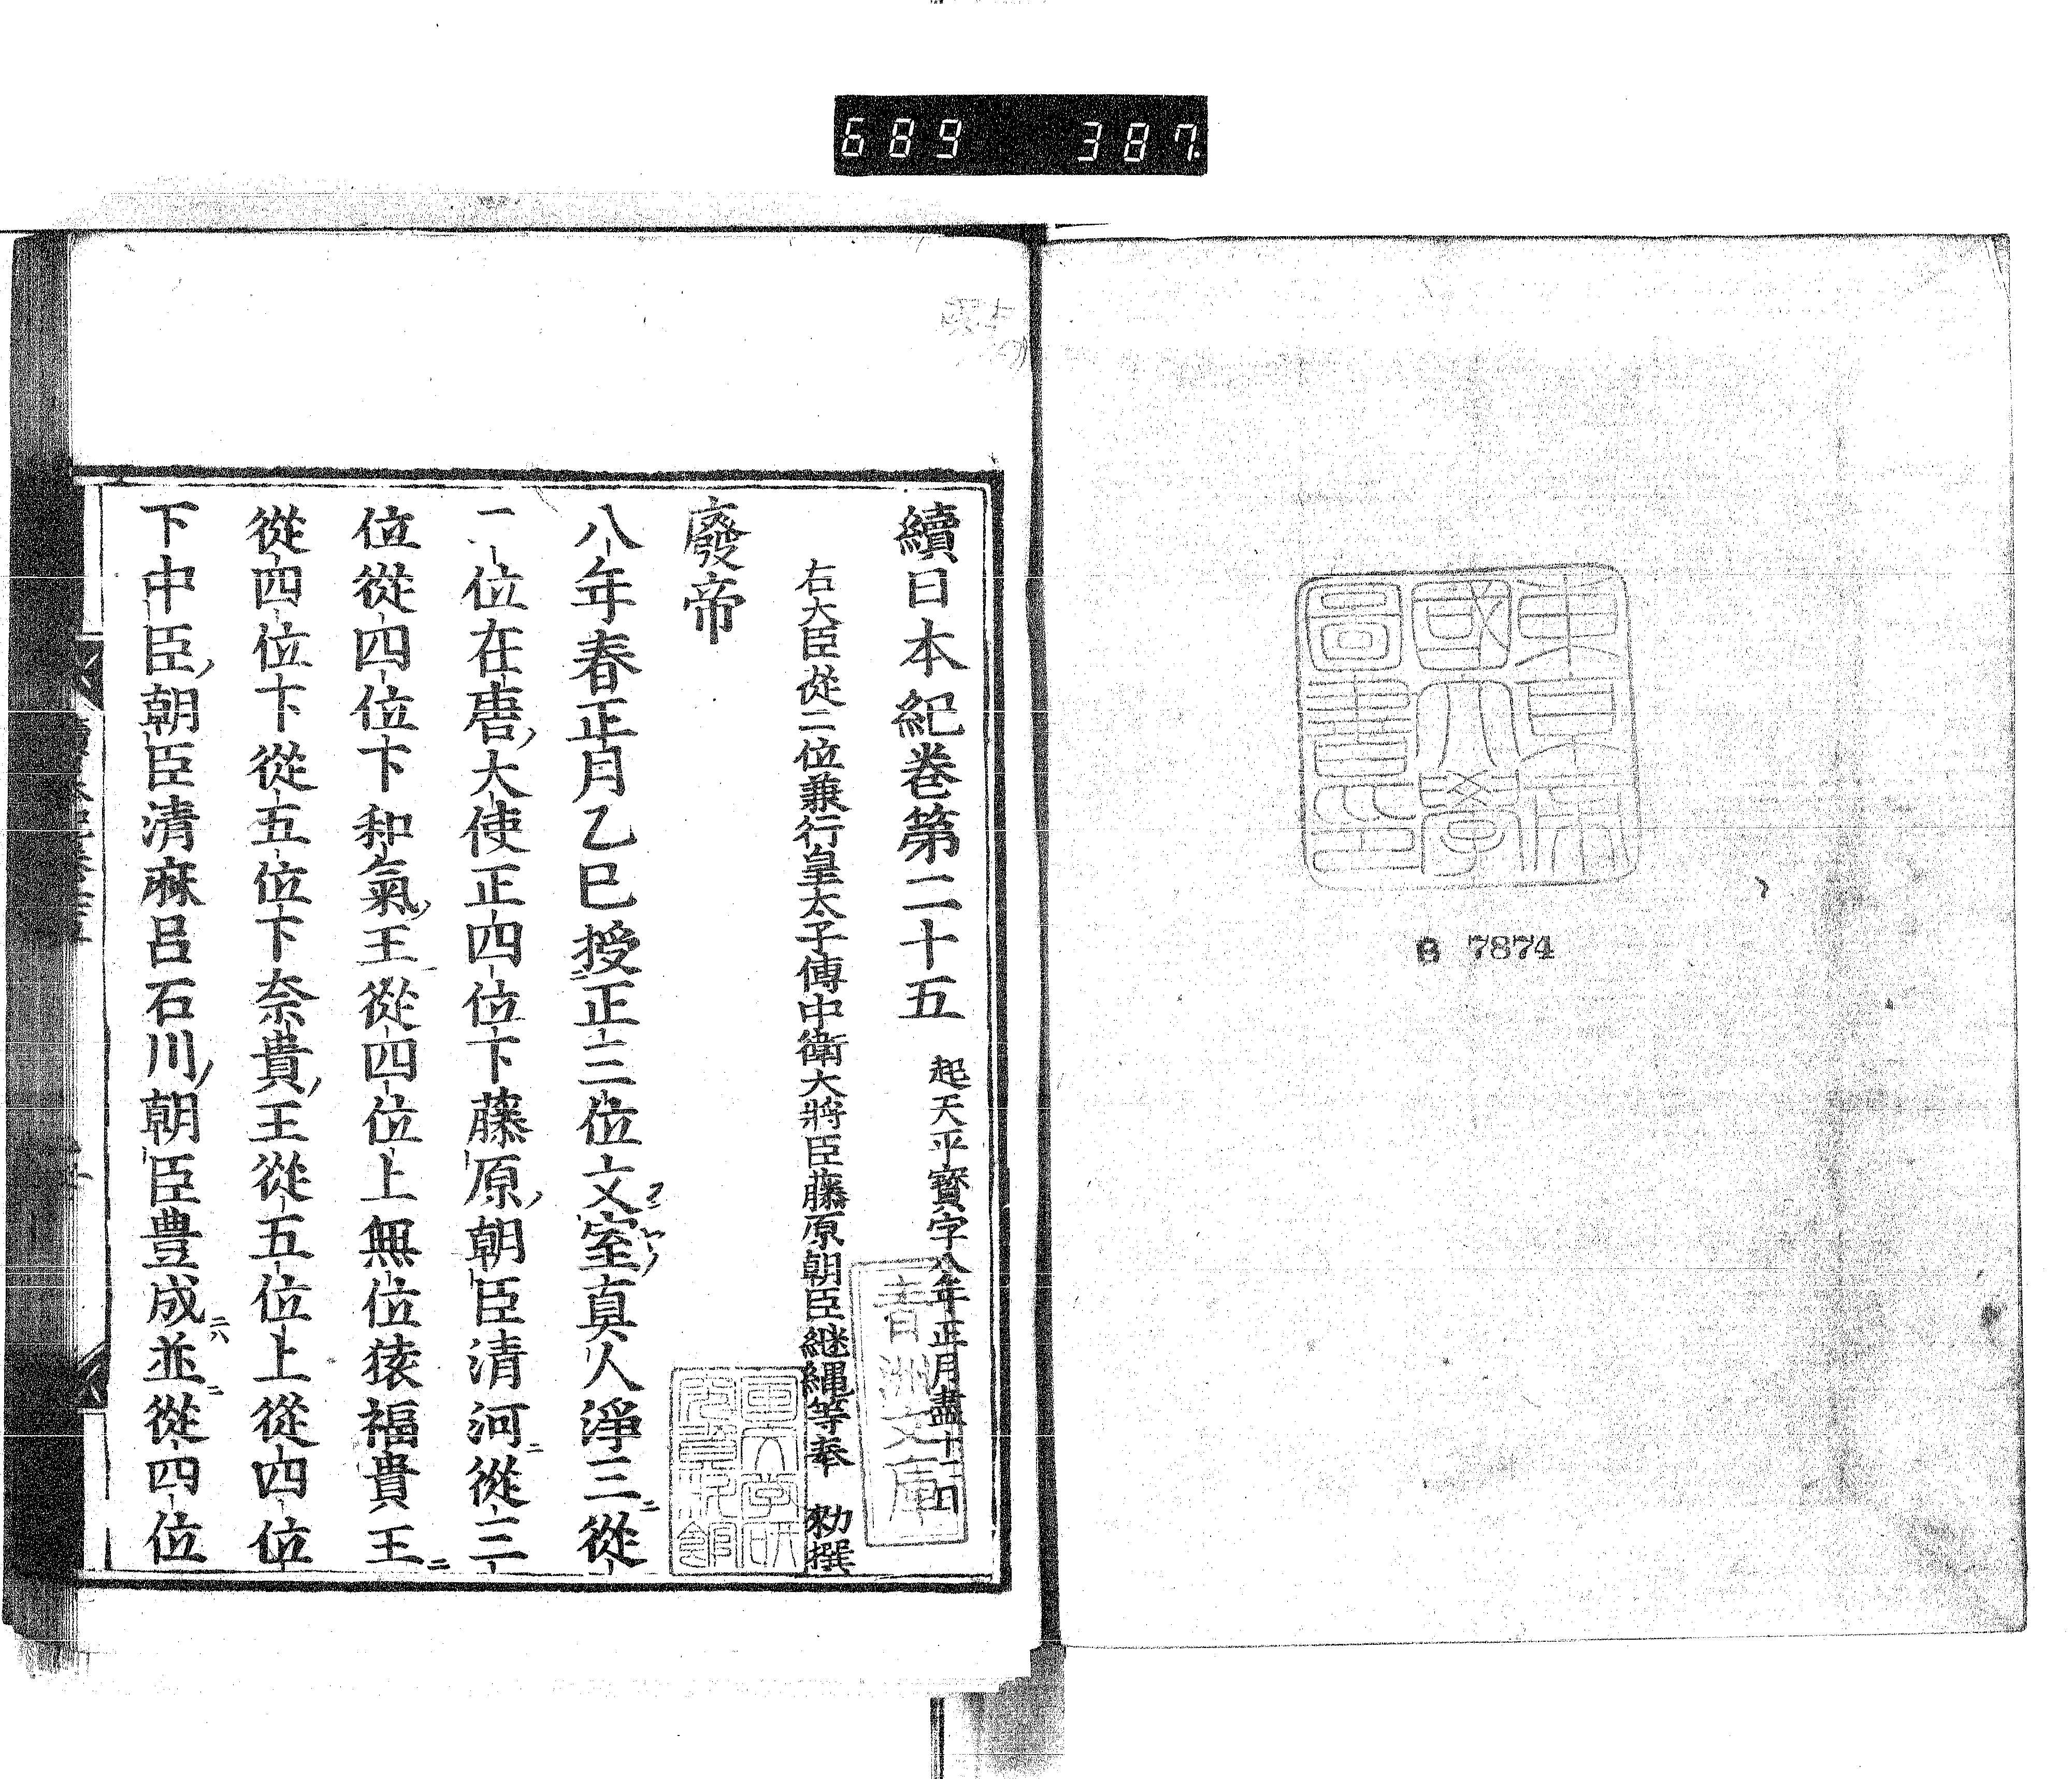 689 387.
東京帝
國大學
圖書印
B 7874
續日本紀卷第二十五 起天平寳字八年正月盡十二月
右大臣從二位兼行皇太子傅中衛大將臣藤原朝臣継縄等奉 勅撰
青洲文庫
廢帝
八年春正月乙巳授正三位文室真人淨三從
一位在唐大使正四位下藤原朝臣清河從三
位從四位下和氣王從四位上無位猿福貴王
從四位下從五位下奈貴王從五位上從四位
下中臣朝臣清麻呂石川朝臣豊成並從四位